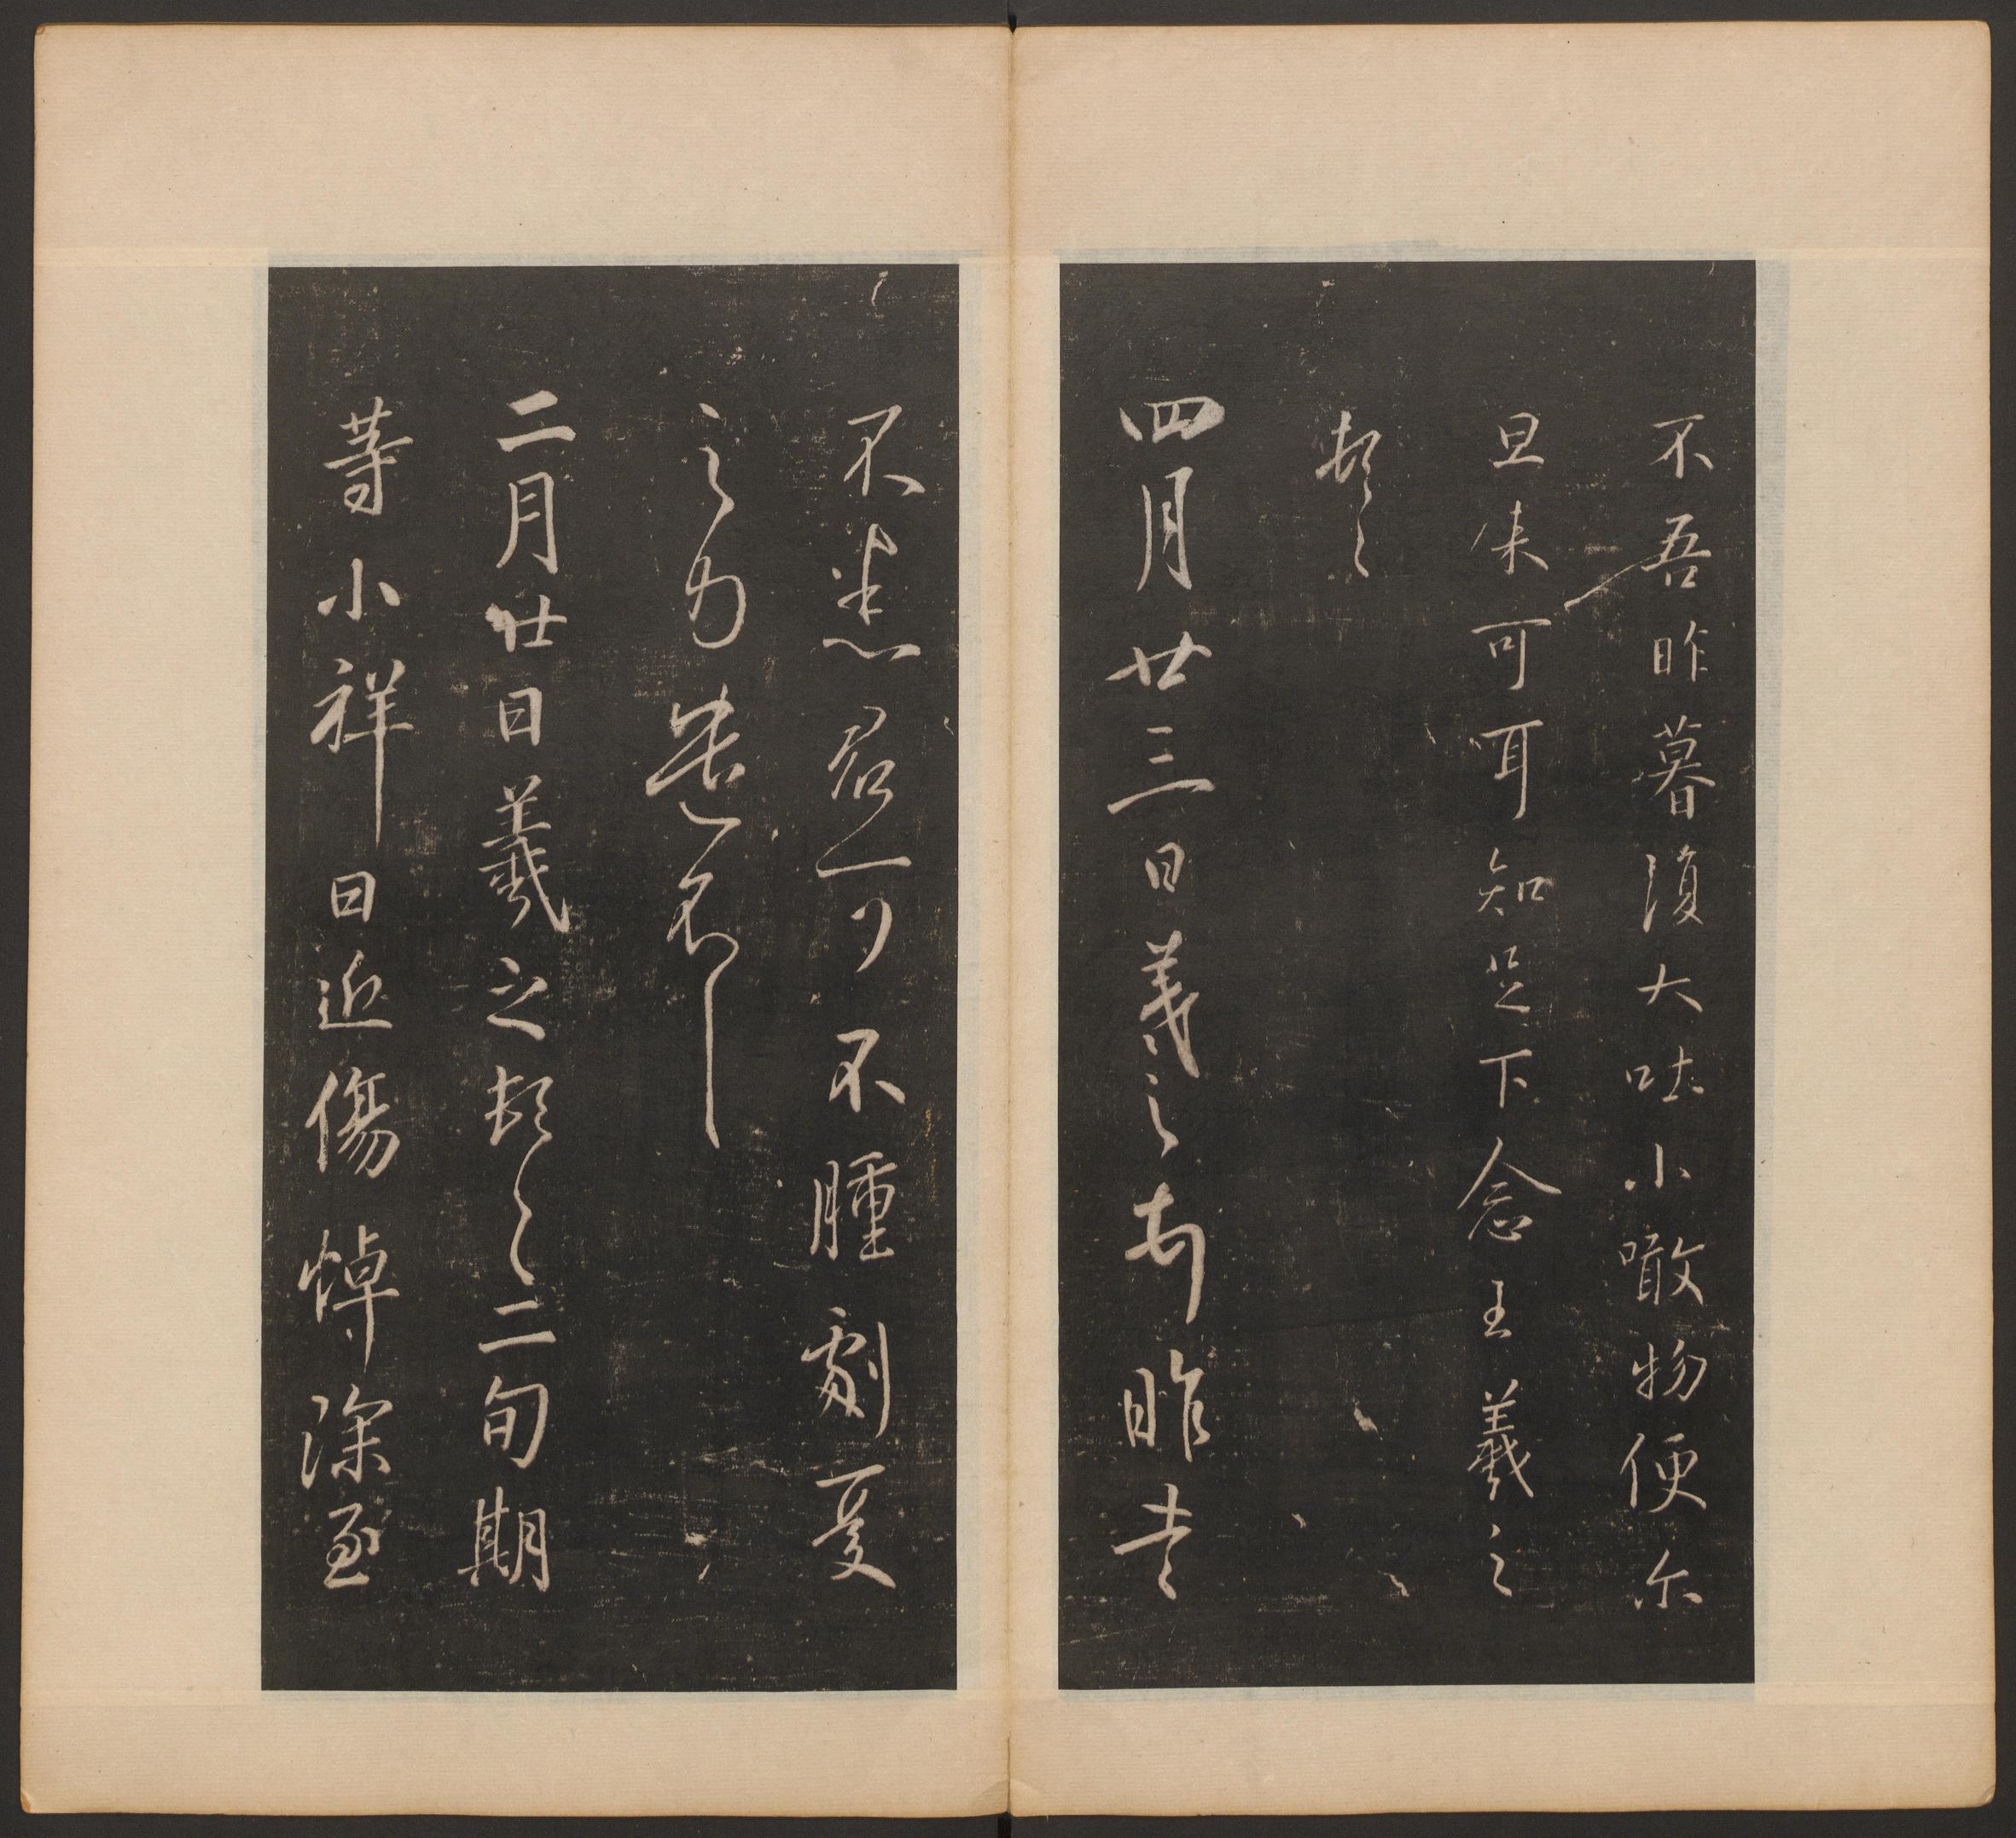 不吾昨暮復大吐小噉物便尔
旦来可耳知足下念王羲之
頓首
四月廿三日羲之頓首昨書
不悉君可不腫劇憂
之力遣不
二月廿日羲之頓首二旬期
等小祥日近傷悼深至